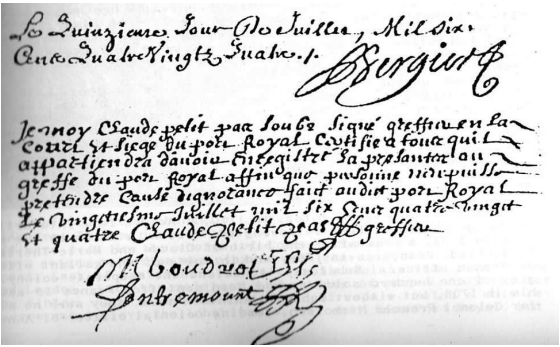 Le Quinzieme Jour De Juillet, Mil Six
Cens Quatre Vingtz Quatre.
Bergier
Je moy Claude petit par Soubz Signé greffier en la
Court et Siege du port Royal Certifie a tous quil
appartiendra davoir Enregistré la presante au
greffe du port Royal affin que personne nen puisse
pretendre Cause dignorance fait audit port Royal
Le vingtiesme Juillet mil six Cens quatre vingt
et quatre Claude Petit greffier
M boudrot
Dentremount